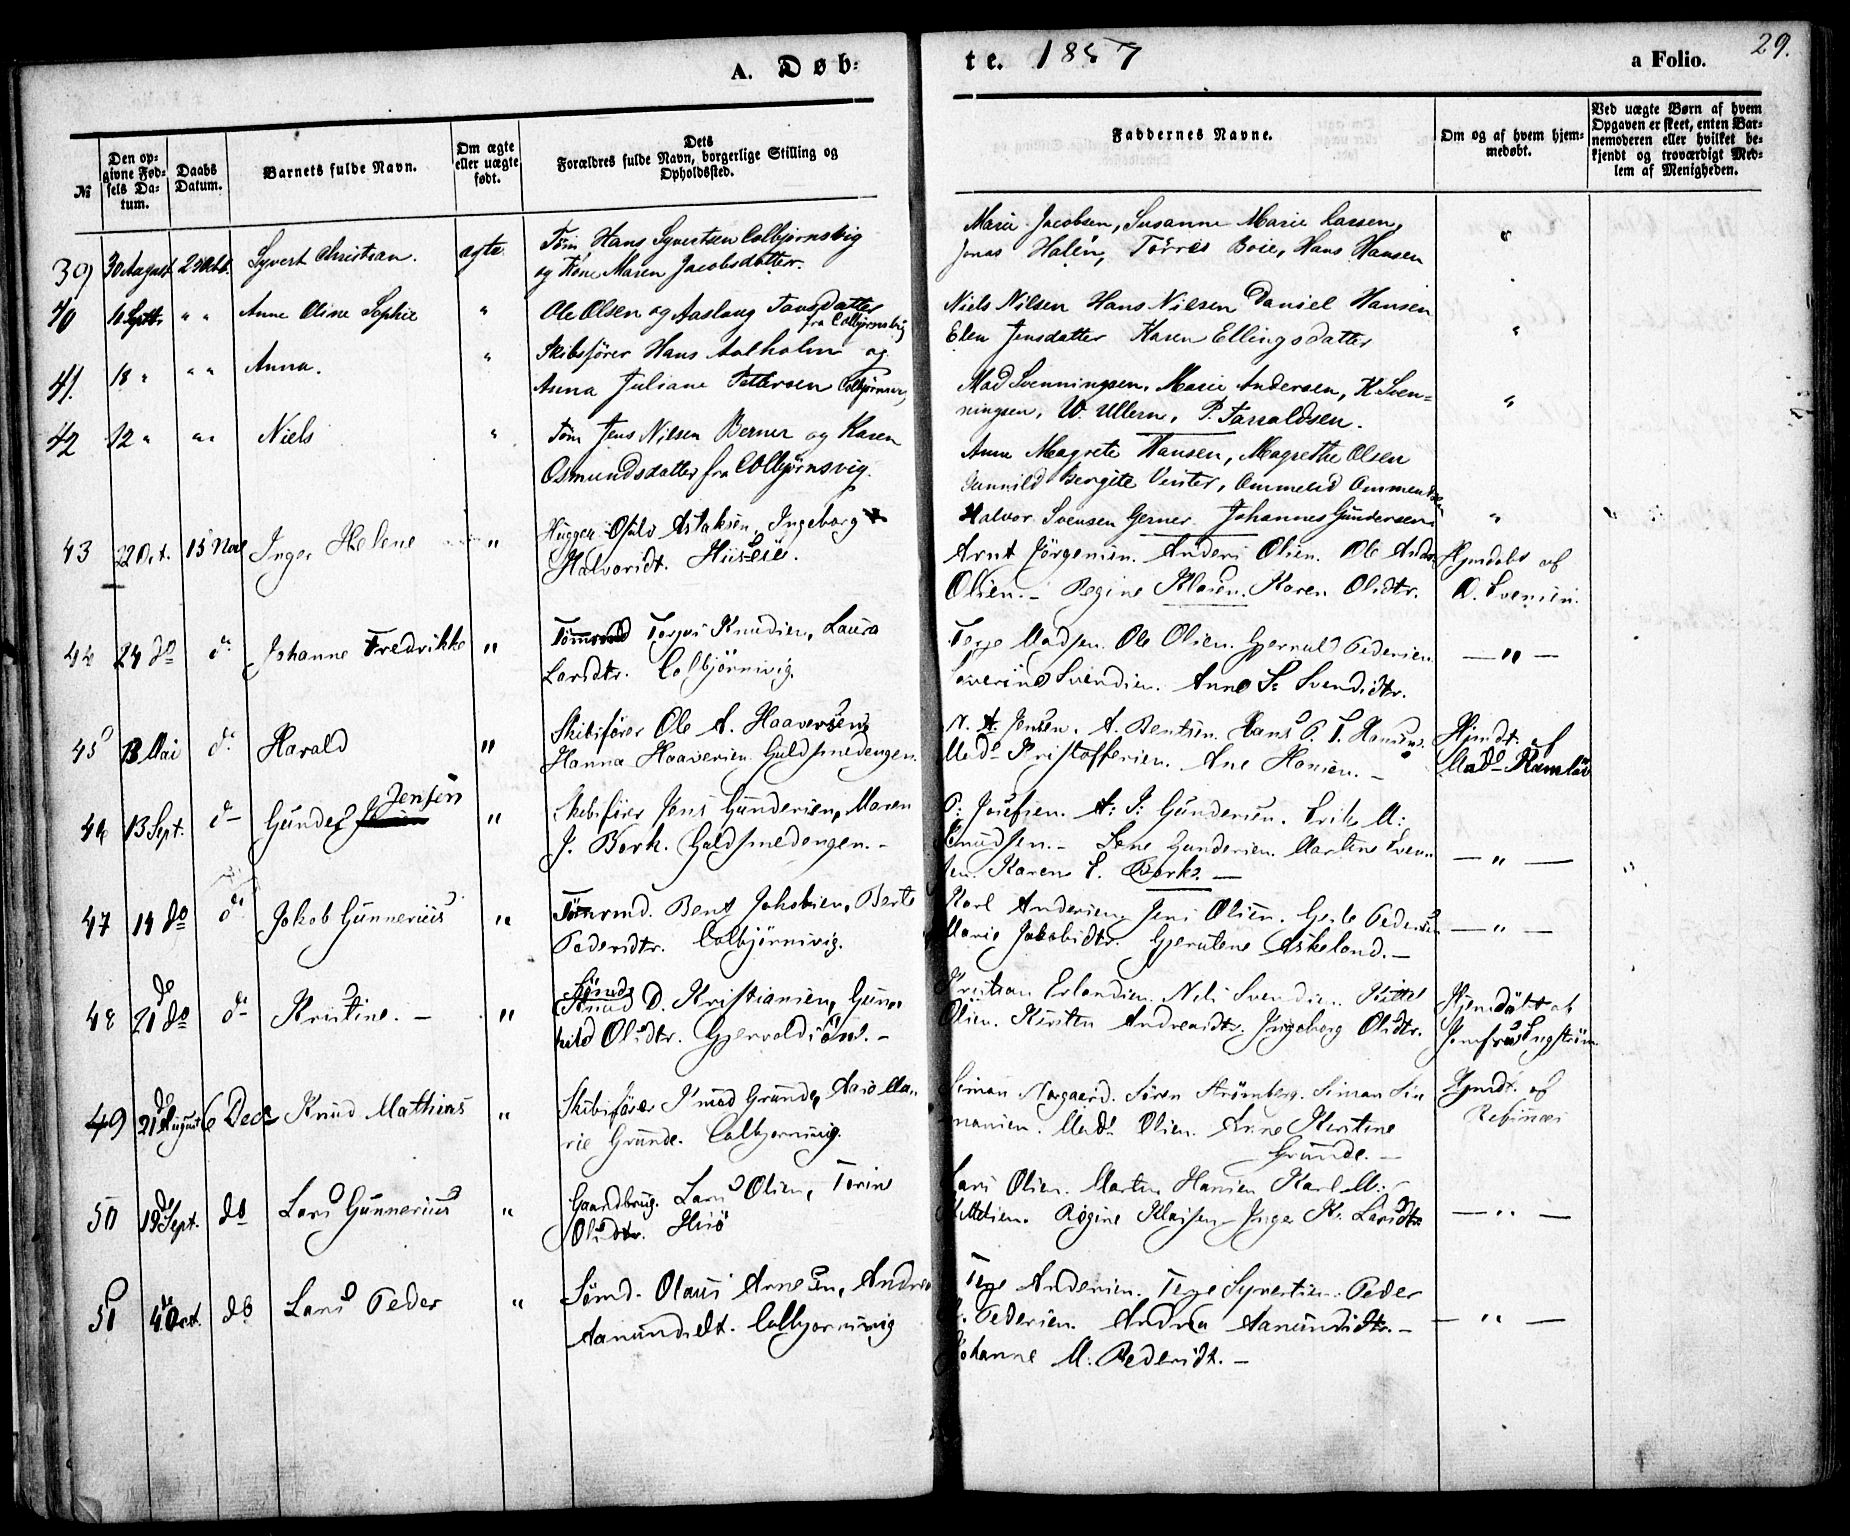 A. Døb-
te. 1857
a Folio.
29.
№
Den op-
givne Fød-
sels Da-
tum.
Daabs
Datum.
Barnets fulde Navn.
Om ægte
eller uægte
født.
Dets
Forældres fulde Navn, borgerlige Stilling og
Opholdssted.
Faddernes Navne.
Om og af hvem hjem-
medøbt.
Ved uægte Børn af hvem
Opgaven er skeet, enten Bar-
nemoderen eller hvilket be-
kjendt og troværdigt Med-
lem af Menigheden.
39 30 August Syvert Christian. ægte Tøm Hans Syvertsen Colbjørnsvig
og Kone Maren Jacobsdatter.
Marie Jacobsen, Susanne Marie Larsen, "
Jonas Halén, Torres Boie, Hans Hansen
40 Septr " " Anne Oline Sophie " Ole Olsen og Aaslaug Tansdatter
fra Colbjørnsvig
Niels Nilsen Hans Nilsen Daniel Hansen
Elen Jensdatter Karen Ellingsdatter "
41. 18 " " " Anna. " Skibsfører Hans Aalholm og
Anna Juliane Pettersen Colbjørnsvig
Mad Svenningsen, Marie Andersen, K Sven=
ningsen, W. Ullern, P. Tarraldsen. "
42 12 " " " Niels " Tøm Jens Nilsen Berner og Karen
Osmundsdatter fra Colbjørnsvig.
Anne Magrete Hansen, Magrethe Olsen
Gunnild Bergite Venter, Ommelid
Halvor Svensen Gerner. Johannes Gundersen "
43 22 Oct. 15 Nov Inger Helene " Hugger Osuld Aslaksen, Ingeborg
Halvorsdt. Hisöeie.
Arnt Jörgensen. Anders Olsen. Ole Ands
Olsen. – Regine Klasen. Karen Olsdtr.
Hjemdøbt af
O. Svensen.
44 24 do d. Johanne Fredrikke " Tömmrmd Terjus Knudsen, Laura
Larsdtr. Colbjörnsvig.
Terje Madsen Ole Olsen. Gjeruld Pedersen
Severine Svendsen. Anne S: Svendsdtr. — " —
45 13 Mai d. Harald " Skibsfører Ole A. Haaversen
Hanna Haaversen Guldsmedengen.
N. A. Jensen. A. Bentsen. Hans P. T. Hansen.
Mad. Kristoffersen. Ane Hansen. –
Hjmdt. af
Mad.
46 13 Sept. d– Gunder Jensen " Skibsfører Jens Gundersen, Maren
J. Bork. Guldsmedengen. –
P: Josefsen. A: J: Gundersen. Erik M:
Knudsen. – Lene Gundersen. Martine Sven-
sen Karen E. Bork. — — " —
47 14 do d. Jakob Gunnerius " Tömrmd. Bent Jakobsen, Berte
Pedersdtr. Colbjörnsvig.
Karl Andersen, Jens Olsen. Gerte Pedersen
Marie Jakobsdtr. Gjerutene Askeland. – — " —
48 21 do d. Kristine. – " Sömd
D. Kristiansen, Gun-
hild Olsdtr. Gjervoldsöen. –
Kristian Erlandsen. Nils Svendsen. Kittel
Olsen. Kirsten Andreasdtr. Ingeborg Olsdtr.
Hjemdöbt af
Jomfru Engström
49 21 August 6 Decr Knud Mathias " Skibsfører Knud Grunde, Aase Ma-
rie Grunde. Colbjornsvig.
Simon Norgaard. Søren Strømberg. Simon Sim-
onsen. Mad. Olsen. Anne Kirstine
Grunde. –
Hjmdt. af
50 19 Sept. do Lars Gunnerius " Gaardbrug. Lars Olsen, Torine
Olsdtr. Hisö
Lars Olsen. Marten Hansen Karl M:
Regine Klausen. Inger K. Larsdtr — " —
51 4 Oct. do Lars Peder " Sömd. Olaus Arnesen, Andrea
Aanundsdt. Colbjornsvig
Terje Andersen. Terje Syvertsen. Peder
Pedersen. Andrea Aanundsdtr. – — " —
Johanne M: Pedersdt. –